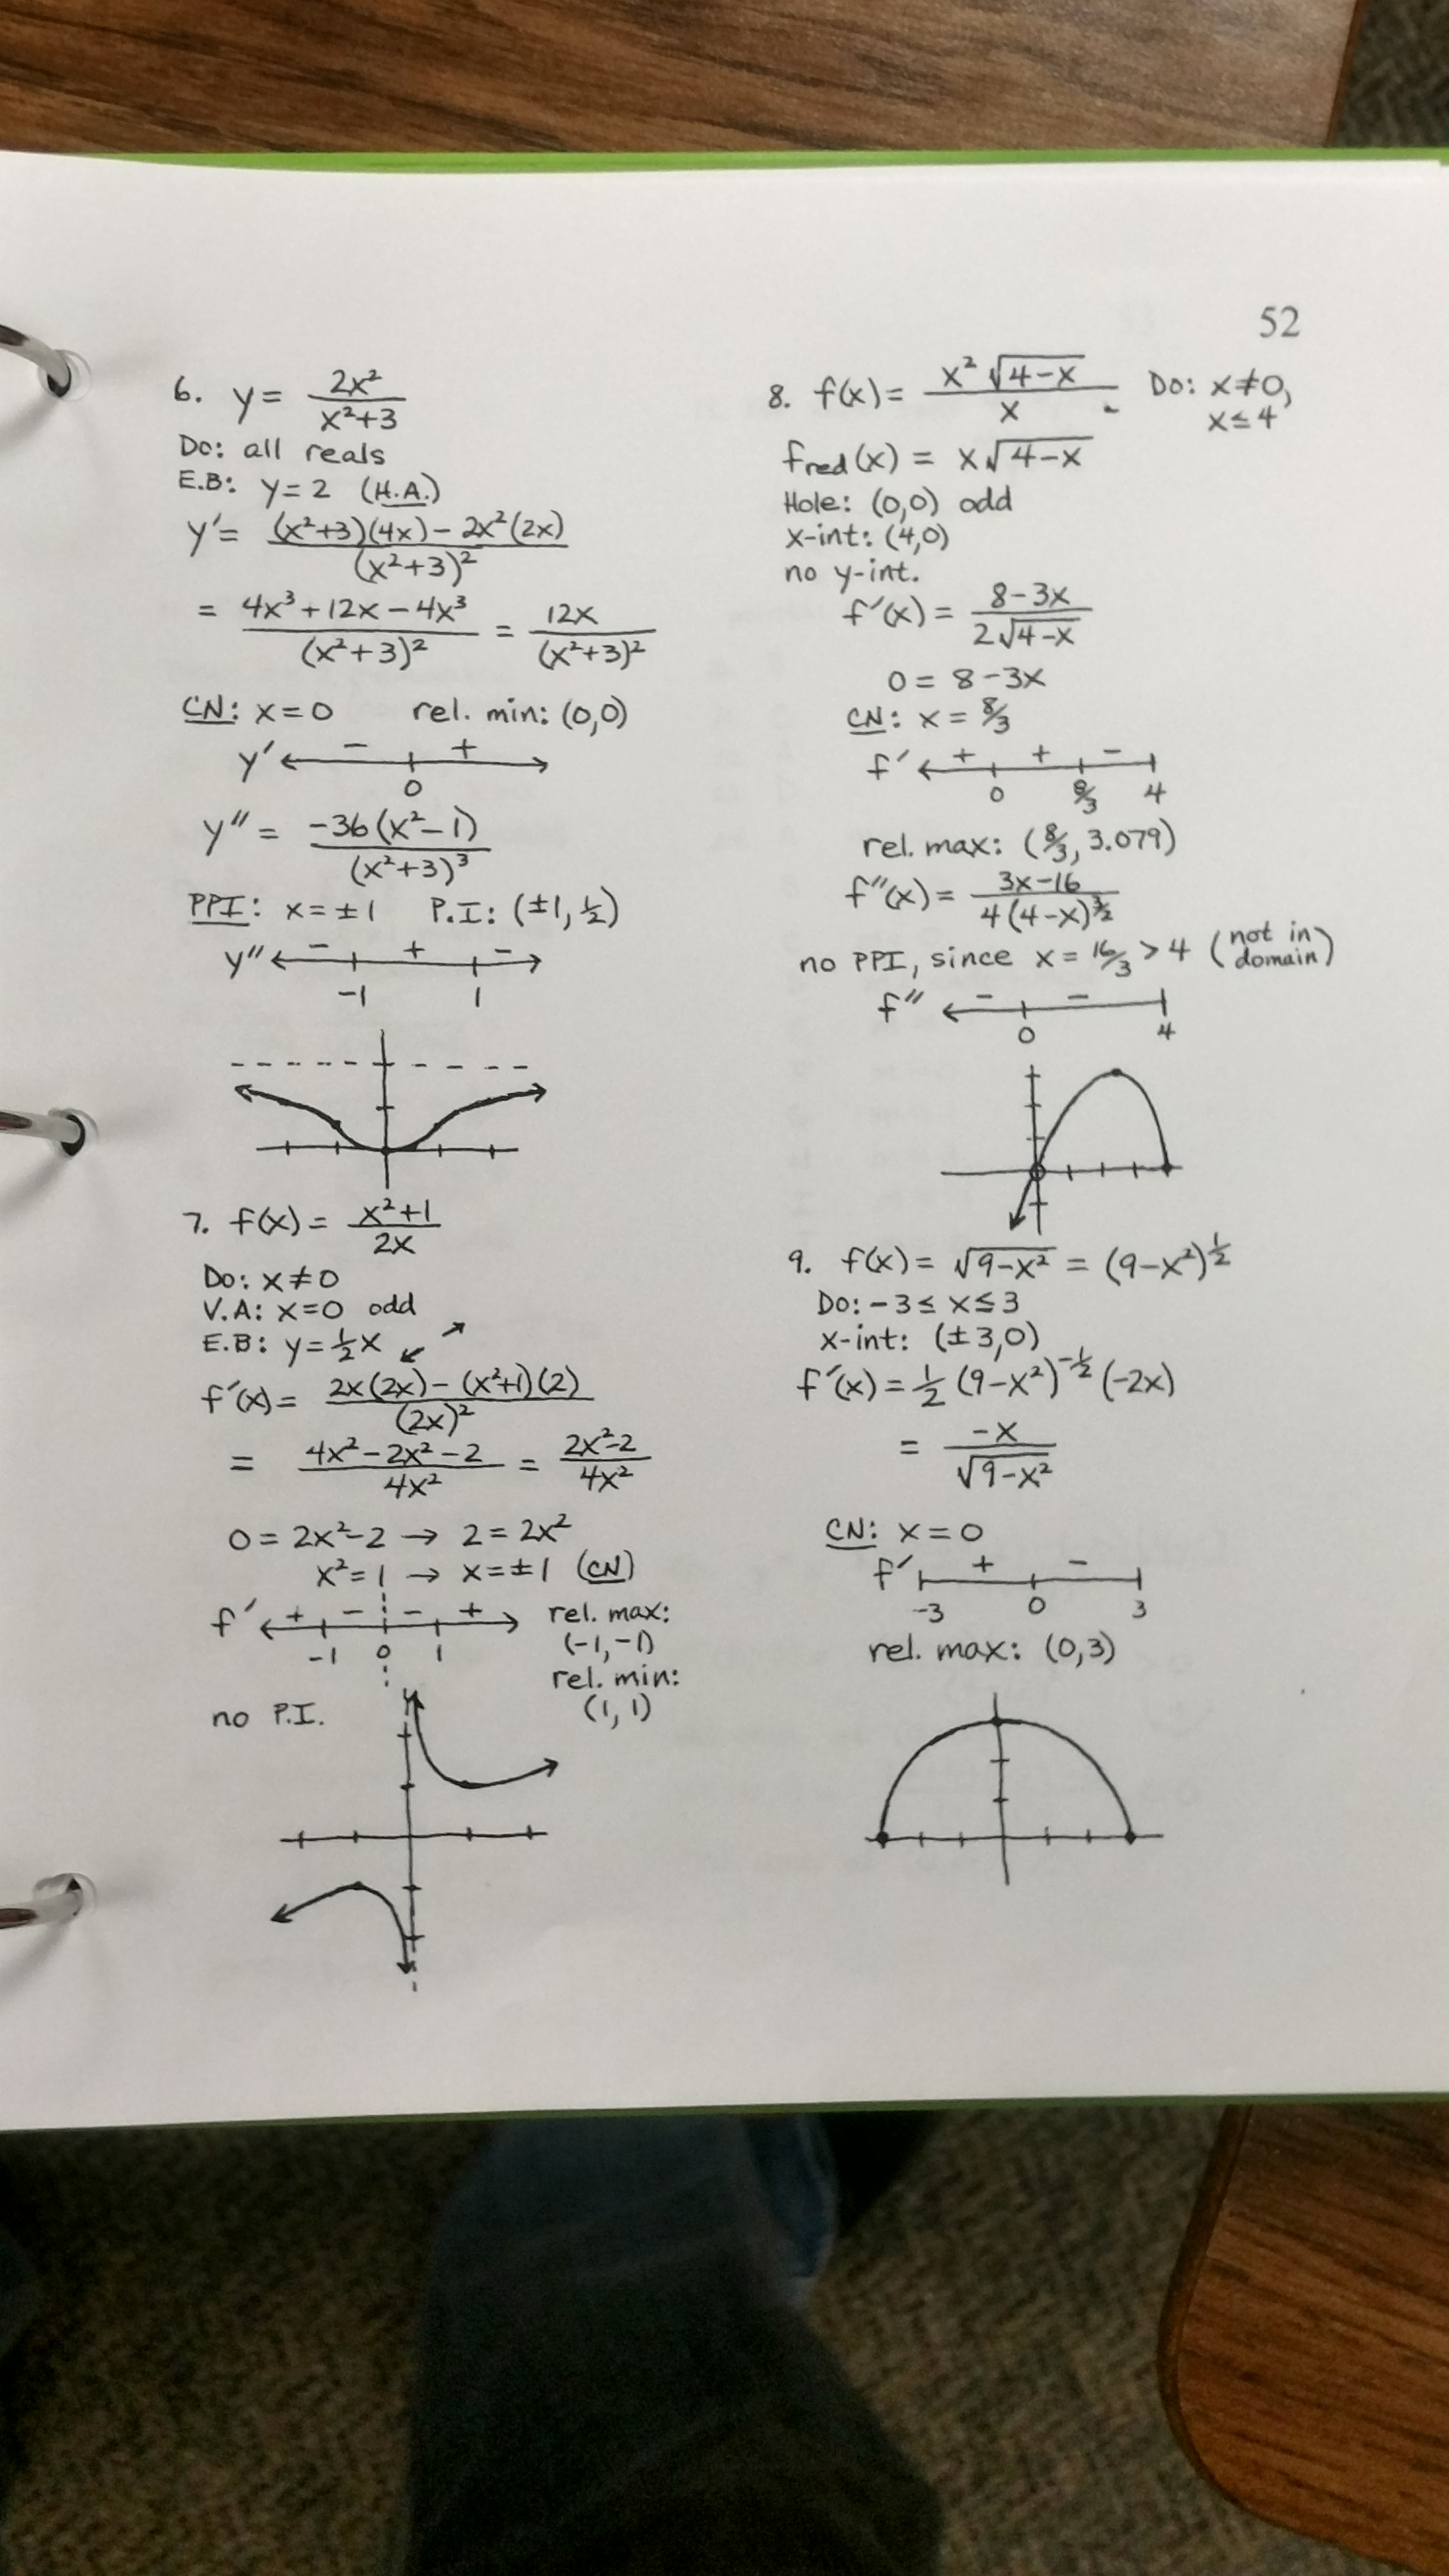 52
6. y = 2x²/(x²+3)
Do: all reals
E.B: y=2 (H.A.)
y' = ((x²+3)(4x) - 2x²(2x))/(x²+3)²
= (4x³+12x-4x³)/(x²+3)² = 12x/(x²+3)²
CN: x=0 rel. min: (0,0)
y' - +
0
y'' = -36(x²-1)/(x²+3)³
PPI: x=±1 P.I: (±1, ½)
y'' - + -
-1 1
7. f(x) = (x²+1)/2x
Do: x≠0
V.A: x=0 odd
E.B: y=½x ↙ ↗
f'(x) = (2x(2x) - (x²+1)(2))/(2x)²
= (4x²-2x²-2)/4x² = (2x²-2)/4x²
0 = 2x²-2 → 2 = 2x²
x²=1 → x=±1 (CN)
f' + - - +
-1 0 1
rel. max:
(-1,-1)
rel. min:
(1,1)
no P.I.
8. f(x) = x²√(4-x)/x Do: x≠0,
x≤4
fred(x) = x√(4-x)
Hole: (0,0) odd
x-int: (4,0)
no y-int.
f'(x) = (8-3x)/(2√(4-x))
0 = 8-3x
CN: x = 8/3
f' + + -
0 8/3 4
rel. max: (8/3, 3.079)
f''(x) = (3x-16)/(4(4-x)^(3/2))
no PPI, since x = 16/3 > 4 (not in domain)
f'' - -
0 4
9. f(x) = √(9-x²) = (9-x²)^(1/2)
Do: -3≤x≤3
x-int: (±3,0)
f'(x) = ½(9-x²)^(-1/2)(-2x)
= -x/√(9-x²)
CN: x=0
f' + -
-3 0 3
rel. max: (0,3)